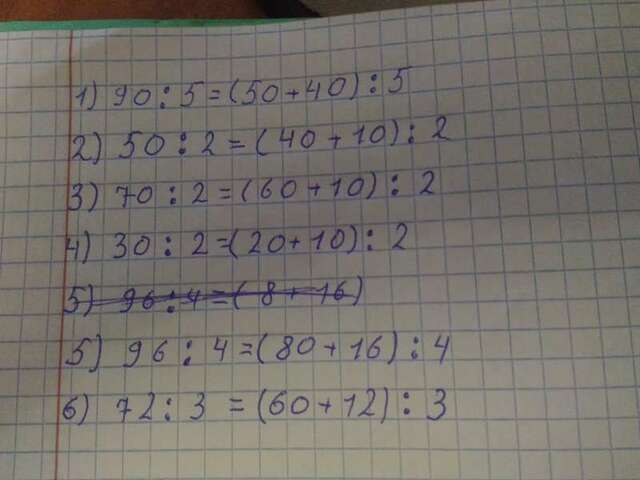 1) 90 : 5 = (50 + 40) : 5
2) 50 : 2 = (40 + 10) : 2
3) 70 : 2 = (60 + 10) : 2
4) 30 : 2 = (20 + 10) : 2
5) 96 : 4 = ( 8 + 16)
5) 96 : 4 = (80 + 16) : 4
6) 72 : 3 = (60 + 12) : 3